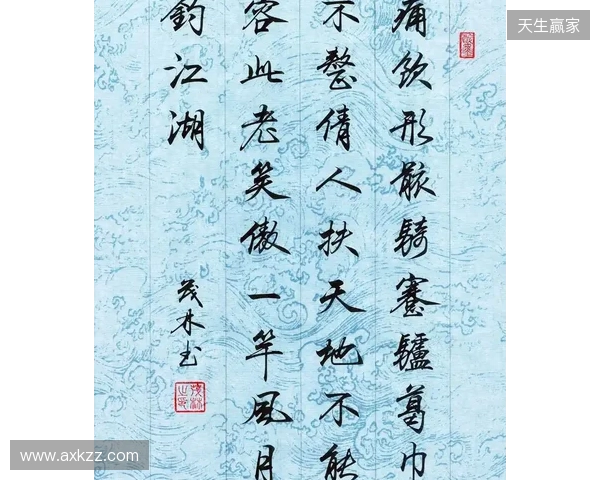 天生赢家
痛飲形骸騎蹇驢葛巾
不整倩人扶天地不能
容此老笑傲一竿風月
釣江湖
茂林书
www.axkzz.com